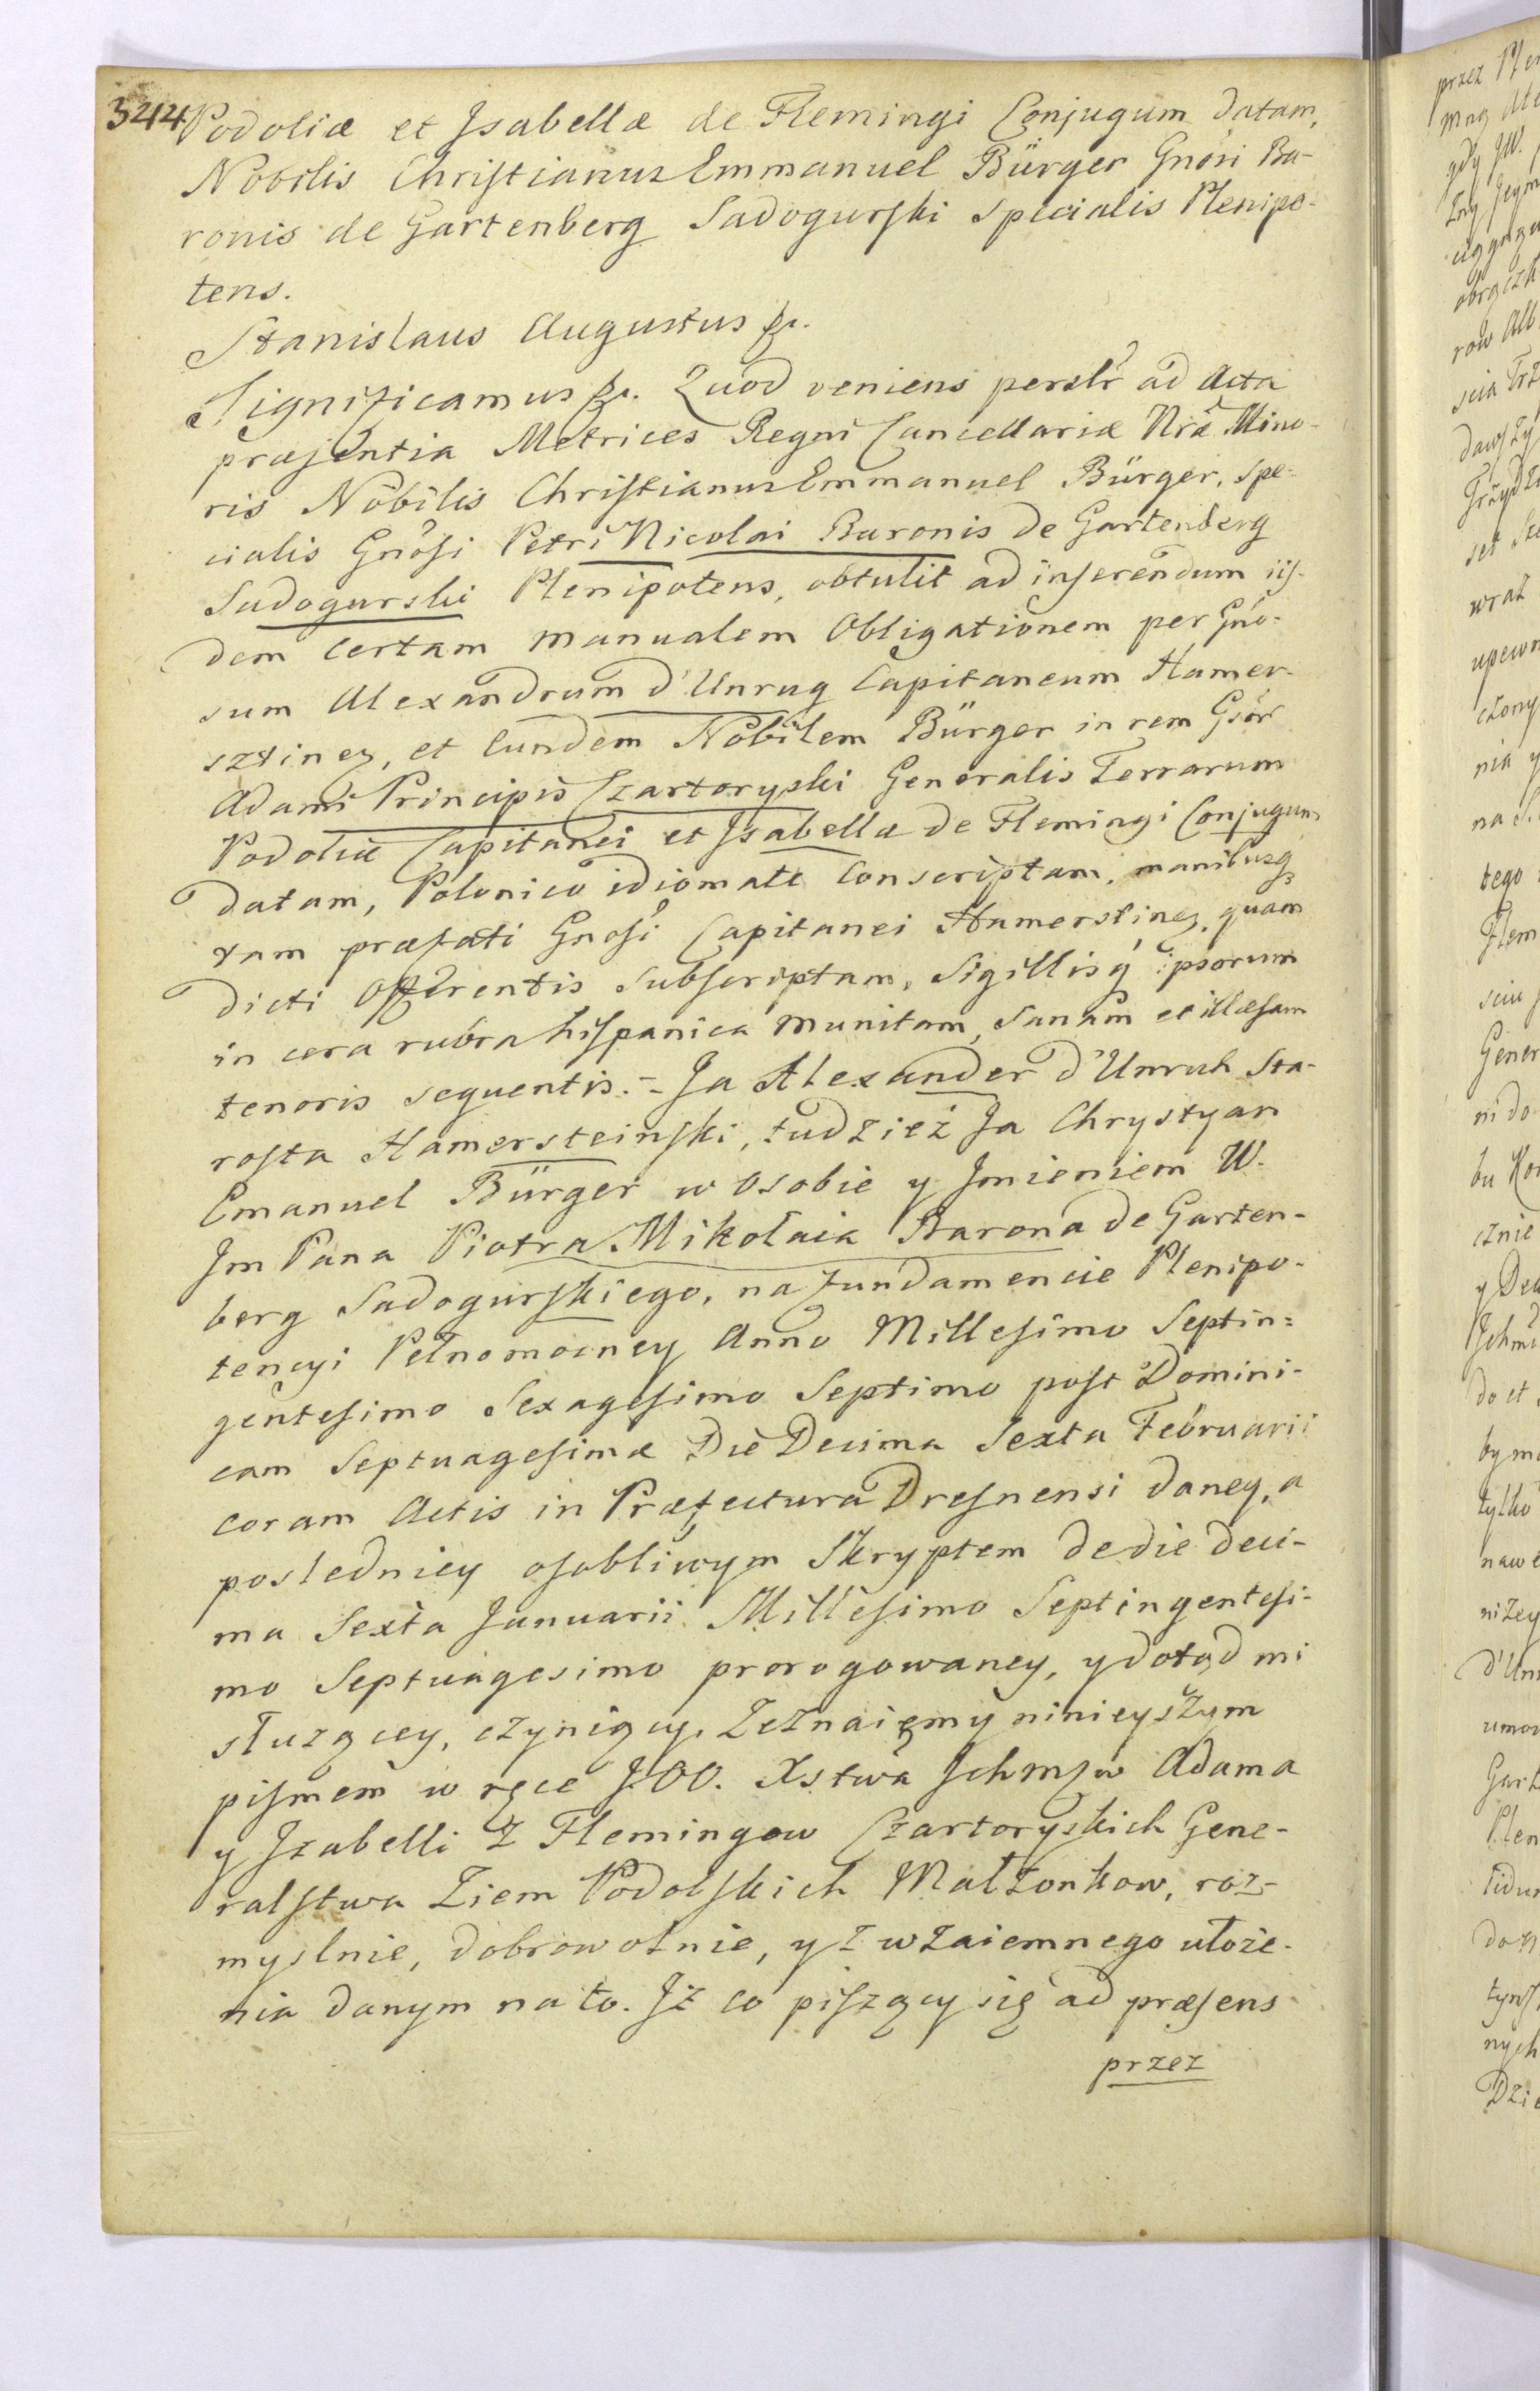 344 Podoliæ et Isabellæ de Flemingi Conjugum datam,
Nobilis Christianus Emmanuel Bürger Gnosi Ba-
ronis de Gartenberg Sadogurski specialis Plenipo-
tens.
Stanislaus Augustus &c.
Significamus &c. Quod veniens perslr ad Acta
præsentia Metrices Regni Cancellariæ Nræ Mino-
ris Nobilis Christianus Emmanuel Bürger, spe-
cialis Gnosi Petri Nicolai Baronis de Gartenberg
Sadogurski Plenipotens, obtulit ad inserendum iis-
dem certam manualem Obligationem per Gno-
sum Alexandrum d'Unrug Capitaneum Hamer-
sztinen, et eundem Nobilem Bürger in rem Gsor
Adami Principis Czartoryski Generalis Terrarum
Podoliæ Capitanei et Isabella de Flemingi Conjugum
datam, Polonico idiomate Conscriptam, manibusq
tam præfati Gnosi Capitanei Hamerstinen, quam
dicti Offerentis subscriptam, Sigillisq ipsorum
in cera rubra hispanica munitam, sanam et illæsam
tenoris sequentis. - Ja Alexander d'Unruh Sta-
rosta Hamersteinski, tudzież Ja Chrystyan
Emanuel Bürger w Osobie y Jmieniem W.
Jm Pana Piotra Mikołaia Barona de Garten-
berg Sadogurskiego, na fundamencie Plenipo-
tencyi Pełnomocney Anno Millesimo Septin=
gentesimo Sexagesimo Septimo post Domini-
cam Septuagesimæ Die Decima Sexta Februarii
coram Actis in Præfectura Dresnensi daney, a
posledniey osobliwym Skryptem de die deci-
ma Sexta Januarii Millesimo Septingentesi-
mo Septuagesimo prorogowaney, y dotąd mi
służącey, czyniący. Zeznaięmy ninieyszym
pismem w ręce J.OO. Xstwa Jchmsw Adama
y Jzabelli z Flemingow Czartoryskich Gene-
ralstwa Ziem Podolskich Małżonkow, roz-
myslnie, dobrowolnie, y z wzaiemnego ułoże-
nia danym na to. Jż co piszący się ad præsens
przez